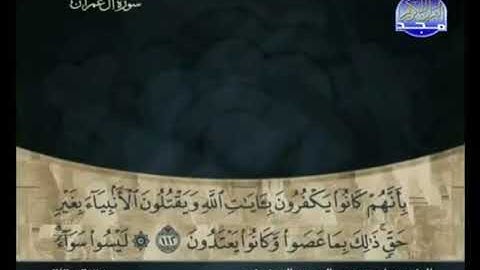 سورة آل عمران
مجد
بِأَنَّهُمْ كَانُوا۟ يَكْفُرُونَ بِـَٔايَٰتِ ٱللَّهِ وَيَقْتُلُونَ ٱلْأَنۢبِيَآءَ بِغَيْرِ
حَقٍّۢ ۚ ذَٰلِكَ بِمَا عَصَوا۟ وَّكَانُوا۟ يَعْتَدُونَ ١١٢ ۞ لَيْسُوا۟ سَوَآءًۭ ۗ